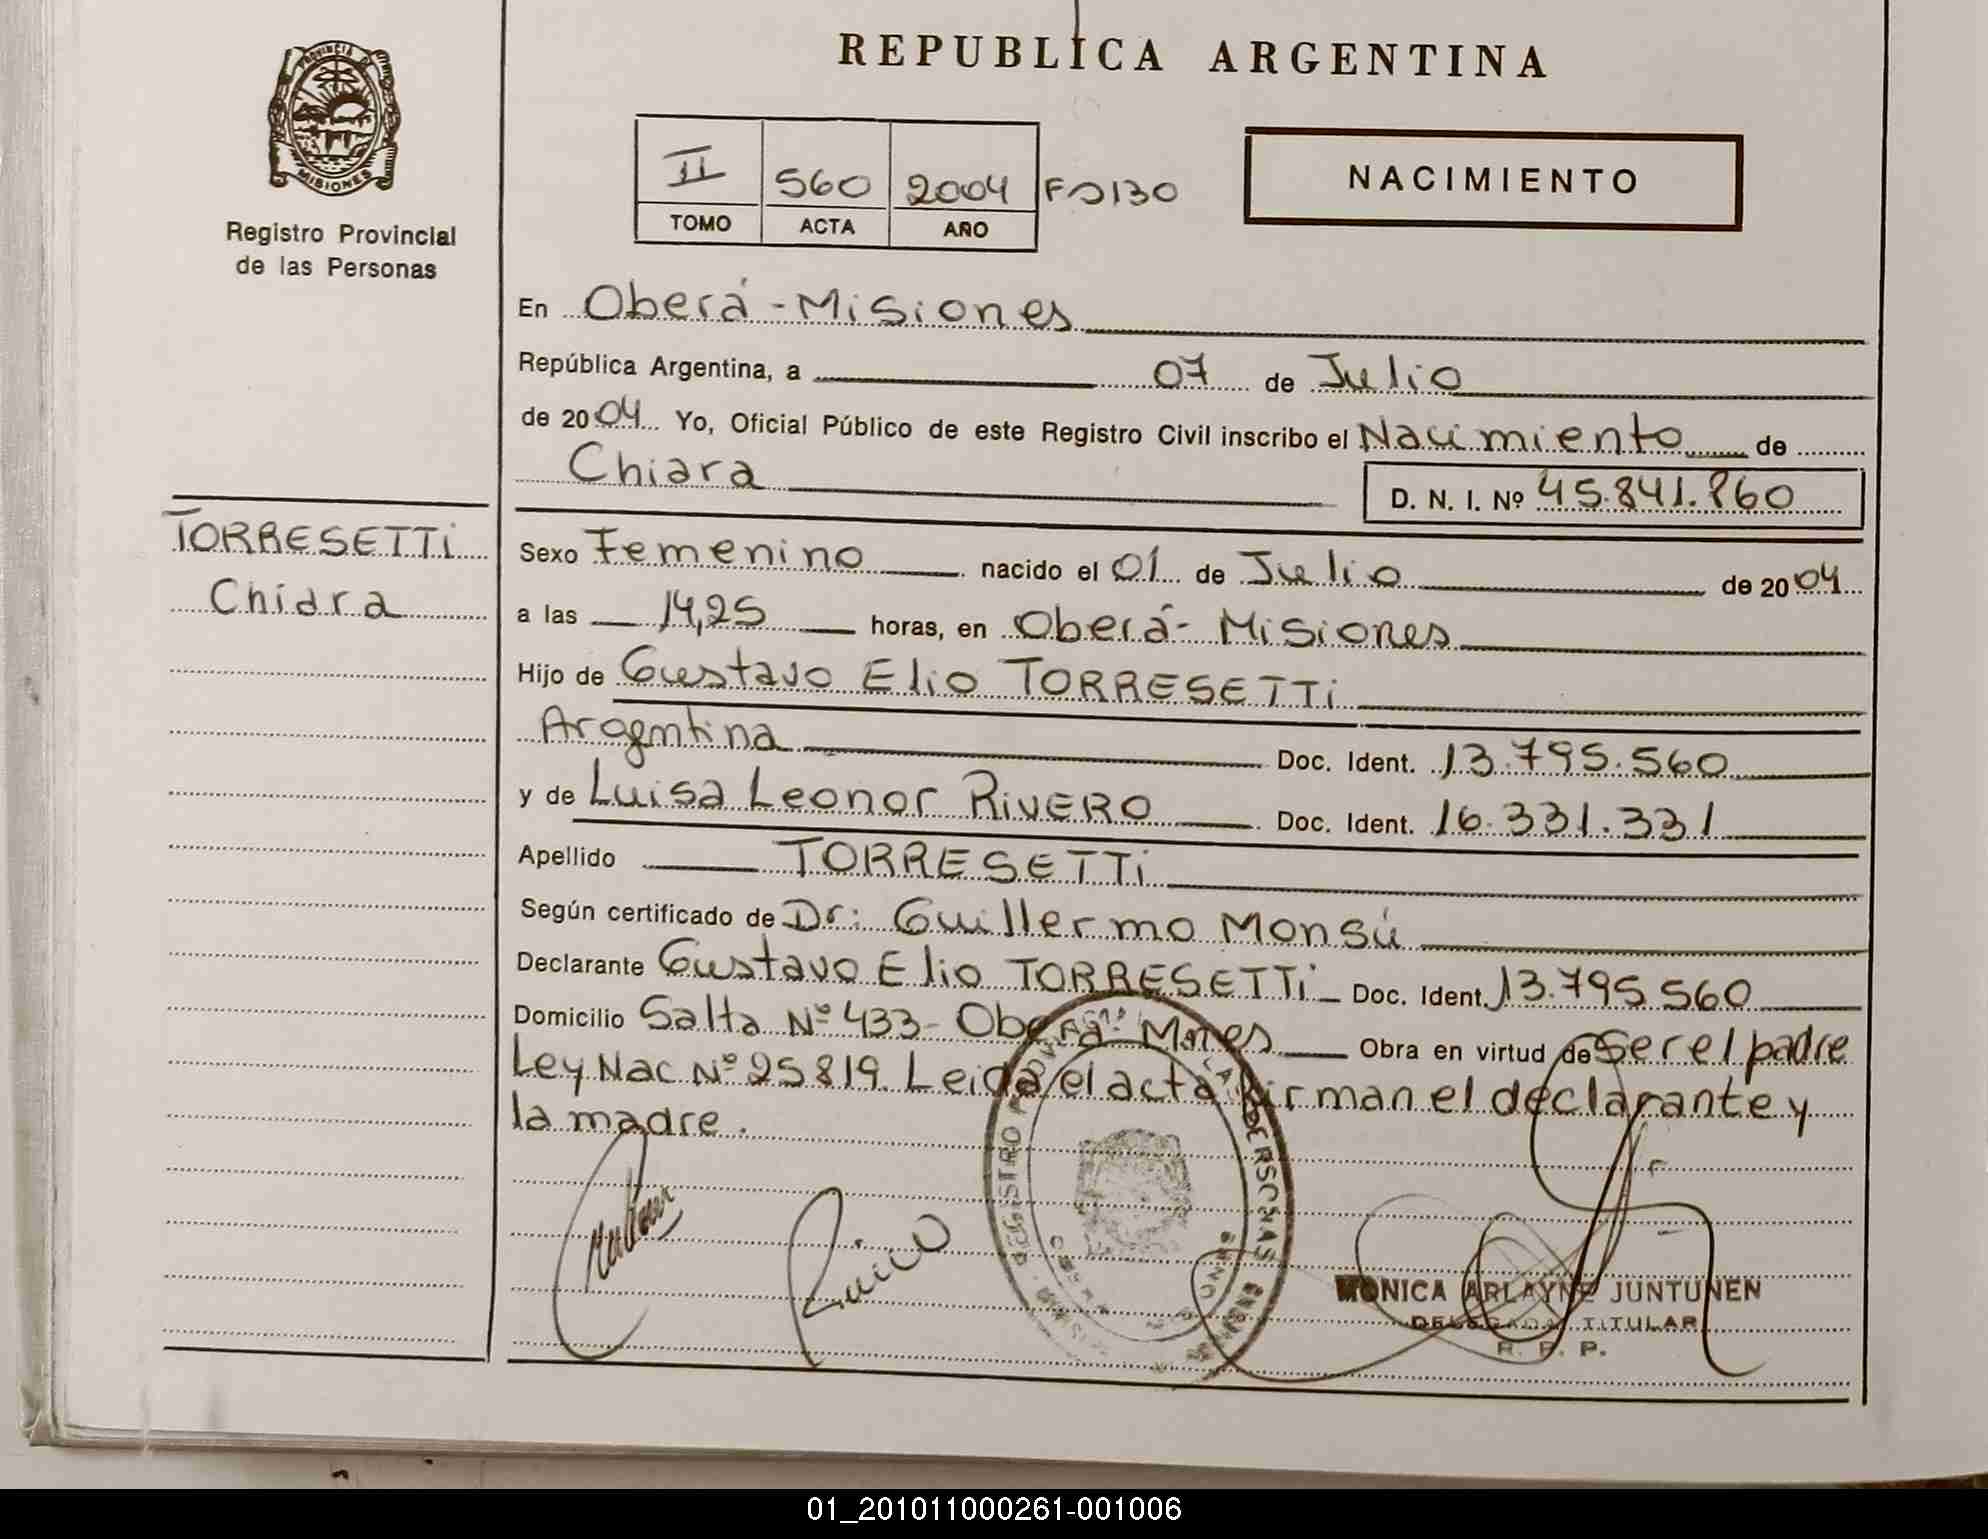 REPUBLICA ARGENTINA
PROVINCIA DE
MISIONES
Registro Provincial
de las Personas
II 560 2004 Fº130
TOMO ACTA AÑO
NACIMIENTO
En Oberá - Misiones
República Argentina, a 07 de Julio
de 2004 Yo, Oficial Público de este Registro Civil inscribo el Nacimiento de
Chiara D. N. I. Nº 45.841.860
TORRESETTI
Chiara
Sexo Femenino nacido el 01 de Julio de 2004
a las 14,25 horas, en Oberá - Misiones
Hijo de Gustavo Elio TORRESETTI
Argentina Doc. Ident. 13.795.560
y de Luisa Leonor RIVERO Doc. Ident. 16.331.331
Apellido TORRESETTI
Según certificado de Dr: Guillermo Monsú
Declarante Gustavo Elio TORRESETTI Doc. Ident. 13.795.560
Domicilio Salta Nº 433 - Oberá - Mnes Obra en virtud de Ser el padre
Ley Nac Nº 25819. Leida el acta firman el declarante y
la madre.
REGISTRO PROVINCIAL DE LAS PERSONAS
MONICA ARLAYNE JUNTUNEN
DELEGADA TITULAR
R. P. P.
01_201011000261-001006